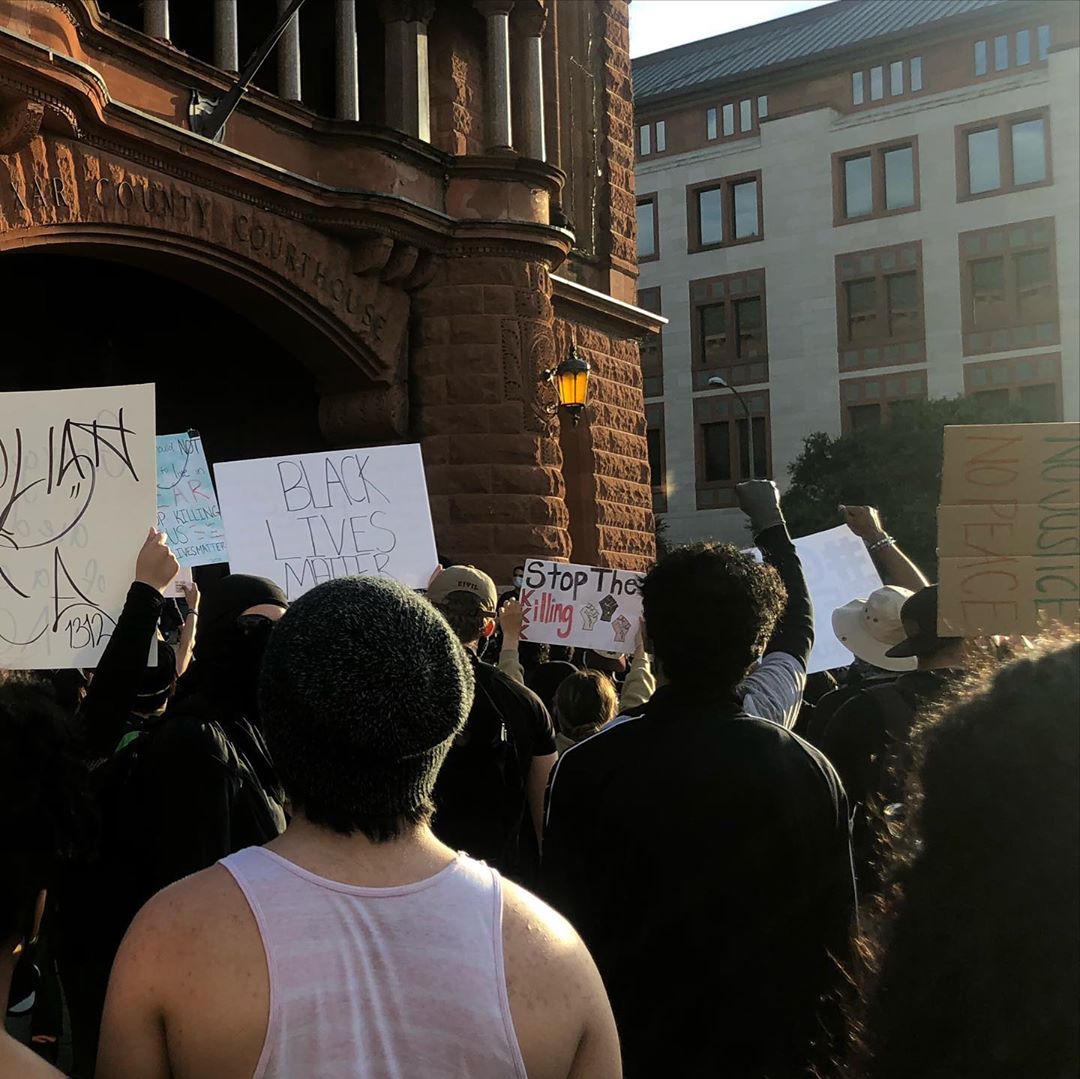 XAR COUNTY COURTHOUSE
LIAN
1312
NOT
live in
AR
P KILLING
US
LIVES MATTER
BLACK
LIVES
MATTER
Stop The
Killing
KKK
CIVIL
NO JUSTICE
NO PEACE